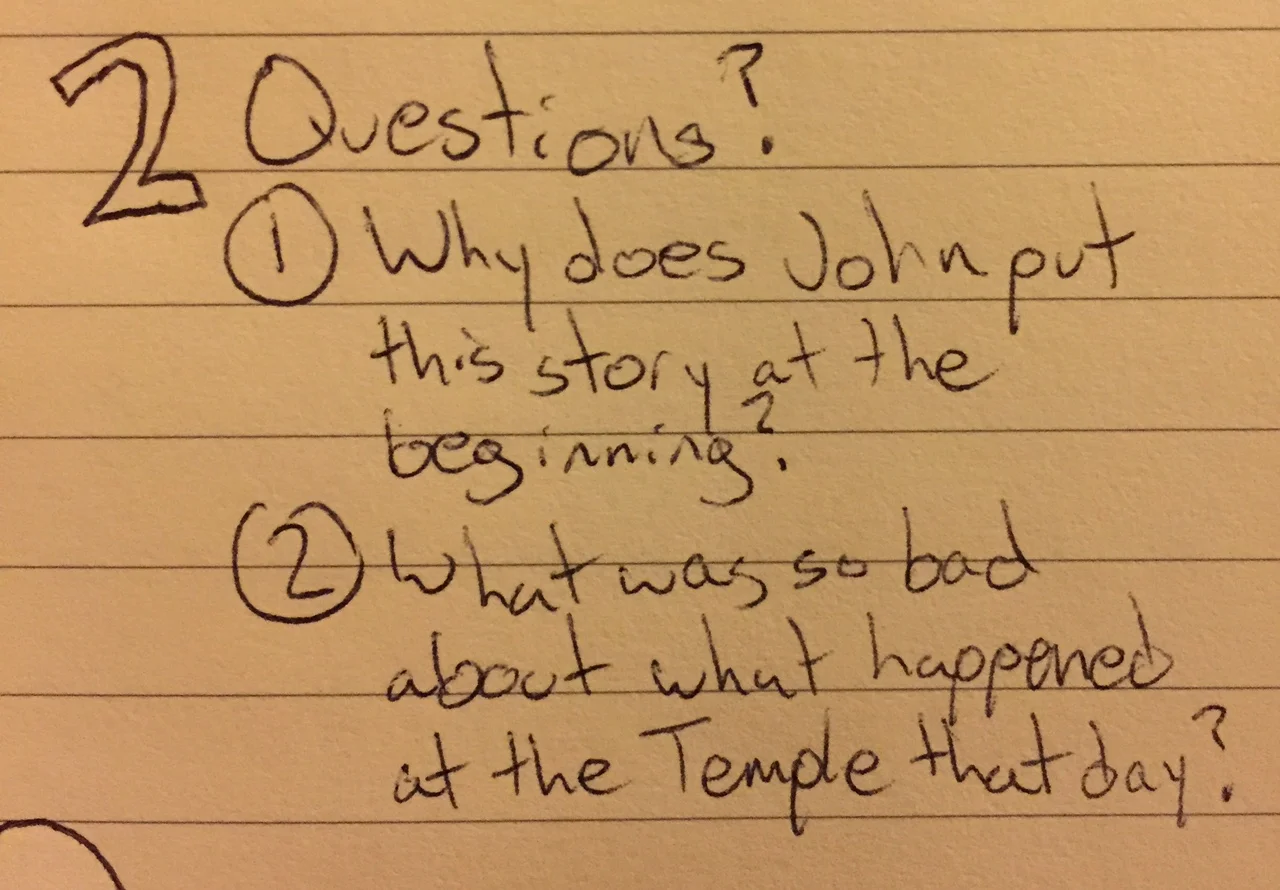 2 Questions?
① Why does John put
this story at the
beginning?
② What was so bad
about what happened
at the Temple that day?